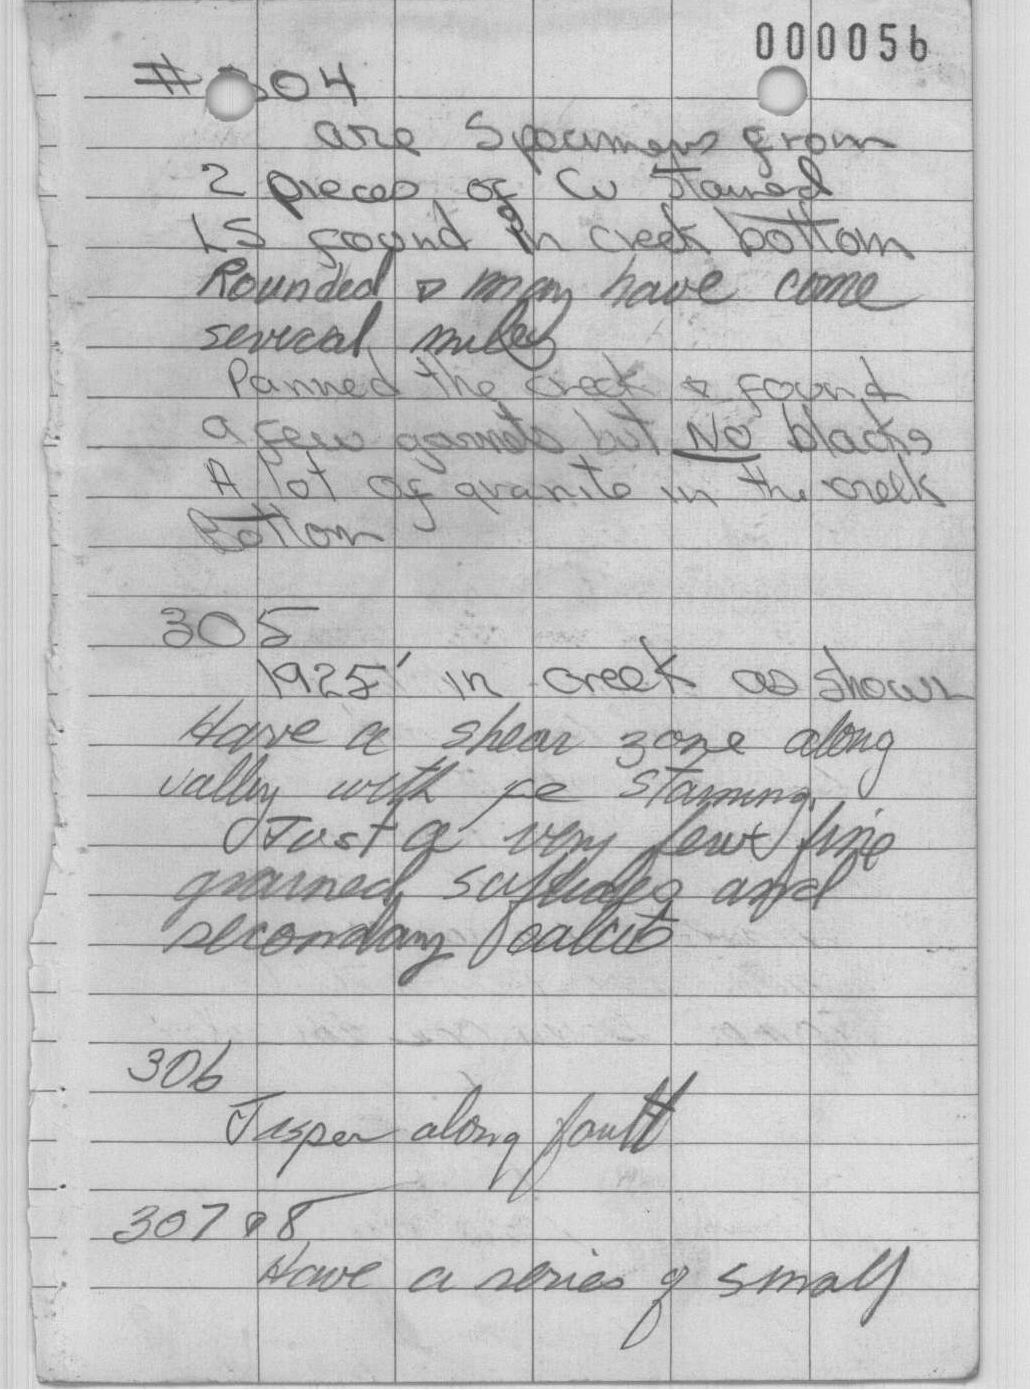 000056
#304
are Specimens from
2 pieces of Cu Stained
LS found in creek bottom
Rounded & may have come
several miles
Panned the creek & found
a few garnets but NO blacks
A lot of granite in the creek
Bottom
305
1925' in creek as shown
Have a shear zone along
vally with fe staining.
Just a very few fine
grained sulfides and
secondary calcite
306
Jasper along fault
307 & 8
Have a series of small